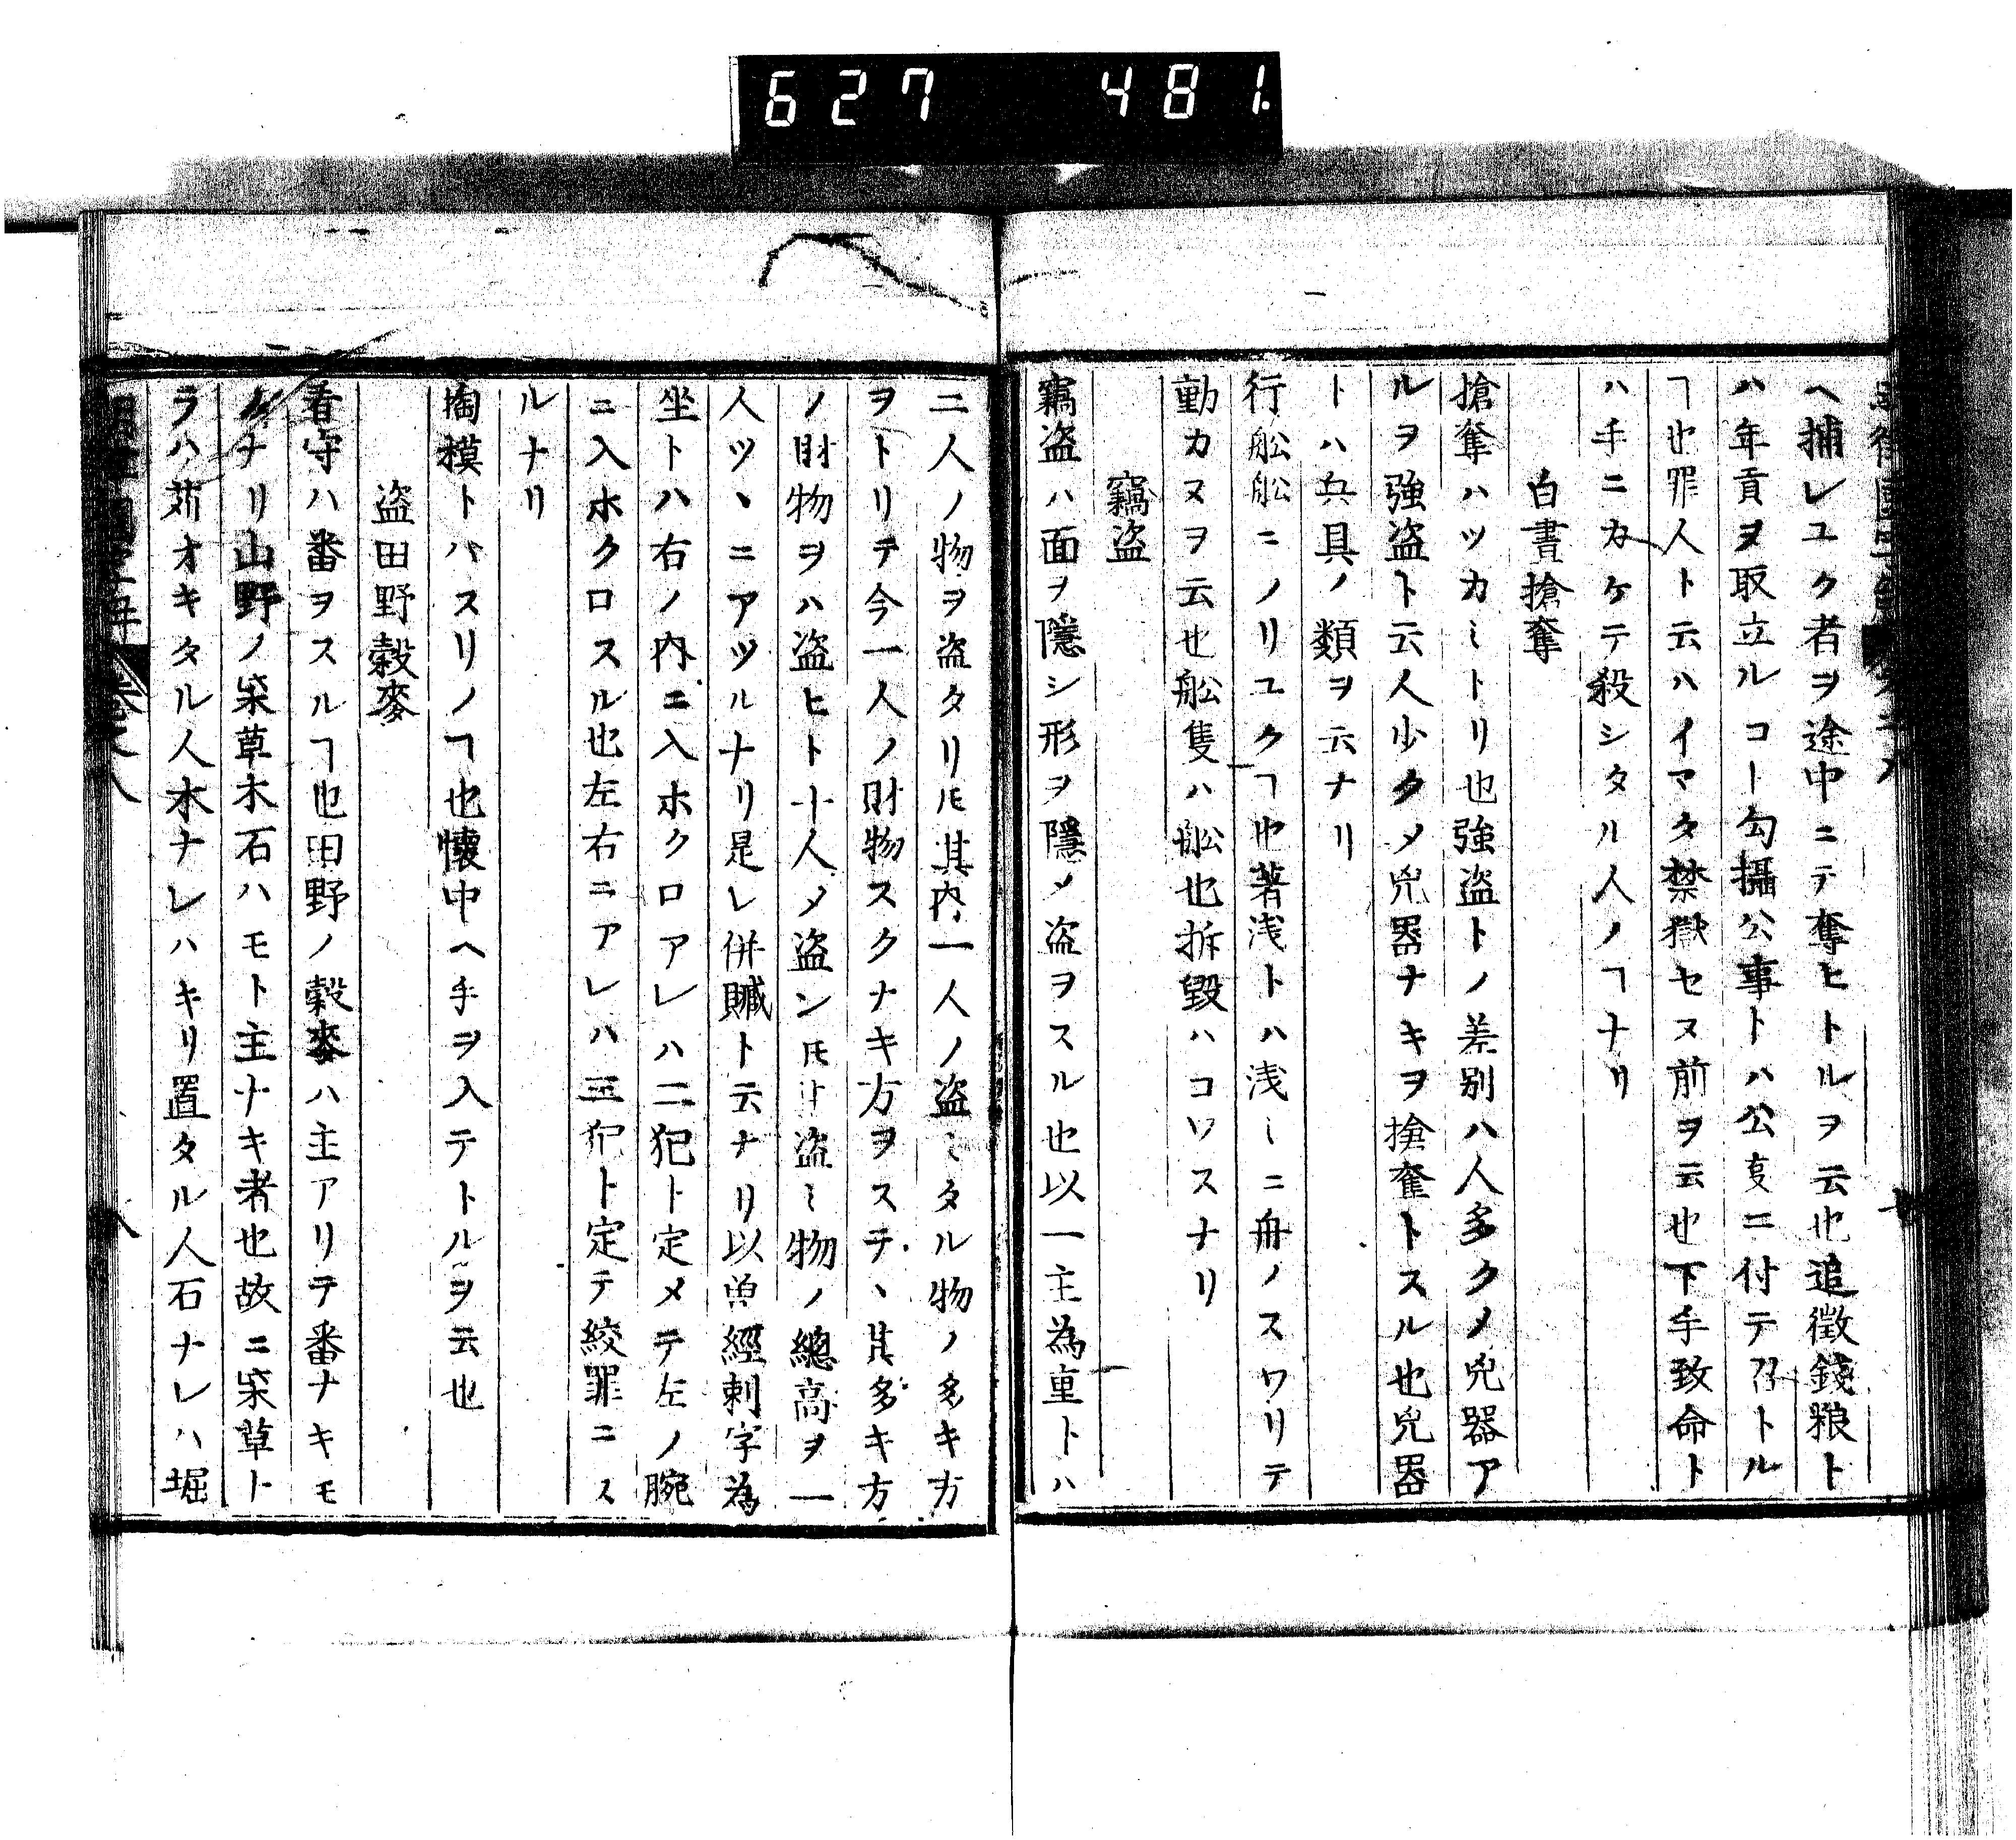 627 481
ヘ捕レユク者ヲ途中ニテ奪ヒトルヲ云也追徴錢粮ト
ハ年貢ヲ取立ルコト勾攝公事トハ公叓ニ付テ召トル
ヿ也罪人ト云ハイマタ禁獄セヌ前ヲ云也下手致命ト
ハ手ニカケテ殺シタル人ノヿナリ
白晝搶奪
搶奪ハツカミトリ也強盗トノ差别ハ人多クメ兇器ア
ルヲ強盗ト云人少クメ兇器ナキヲ搶奪トスル也兇器
トハ兵具ノ類ヲ云ナリ
行舩舩ニノリユクヿ也著浅トハ浅ミニ舟ノスワリテ
動カヌヲ云也舩隻ハ舩也拆毀ハコワスナリ
竊盗
竊盗ハ面ヲ隱シ形ヲ隱メ盗ヲスル也以一主為重トハ
二人ノ物ヲ盗タリ𪜈其内一人ノ盗ミタル物ノ多キ方
ヲトリテ今一人ノ財物スクナキ方ヲステヽ其多キ方
ノ財物ヲハ盗ヒト十人メ盗ン𪜈廿盗ミ物ノ總高ヲ一
人ツヽニアツルナリ是レ併贓ト云ナリ以曽經刺字為
坐トハ右ノ内ニ入ホクロアレハ二犯ト定メテ左ノ腕
ニ入ホクロスル也左右ニアレハ三犯ト定テ絞罪ニス
ルナリ
掏摸トハスリノヿ也懐中ヘ手ヲ入テトルヲ云也
盗田野穀麥
看守ハ番ヲスルヿ也田野ノ穀麥ハ主アリテ番ナキモ
ノナリ山野ノ柴草木石ハモト主ナキ者也故ニ柴草ト
ラハ苅オキタル人木ナレハキリ置タル人石ナレハ堀